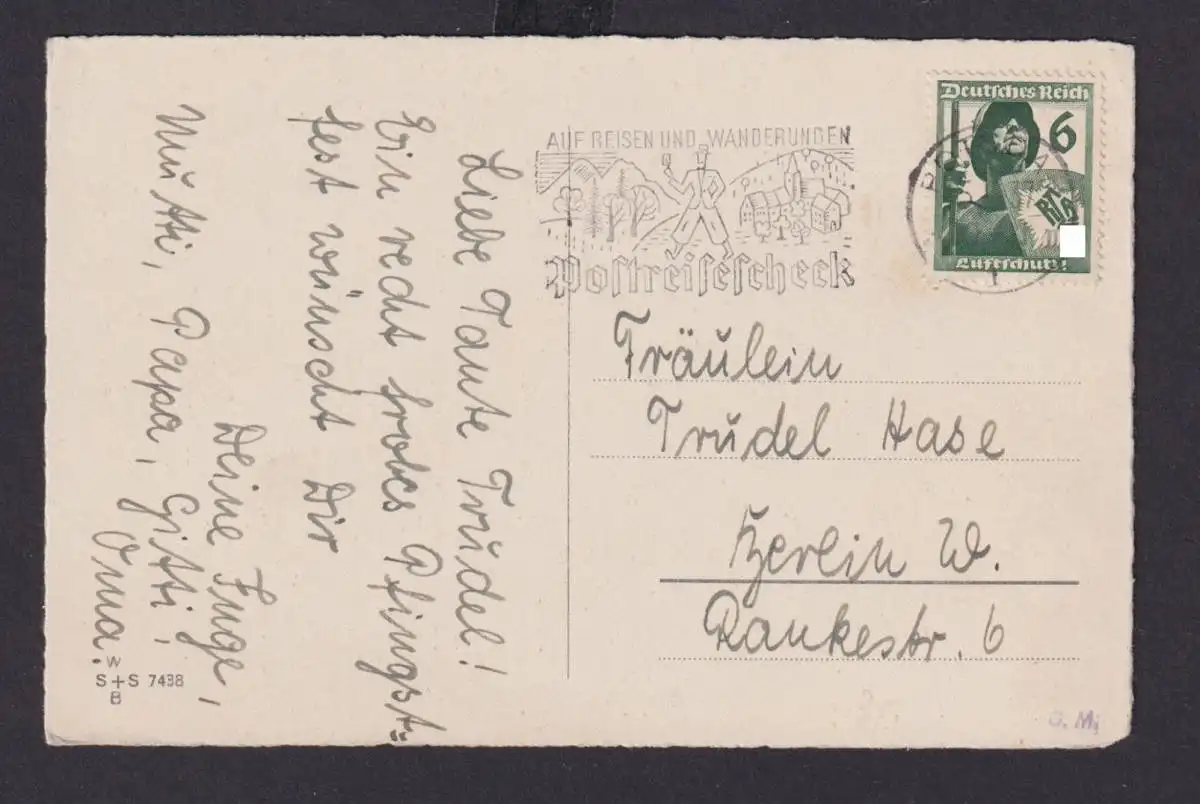 Liebe Tante Trudel!
Ein recht frohes Pfingst-
fest wünscht Dir
Deine Inge,
Mutti, Papa, Gitti,
Oma.
W
S+S 7438
B
AUF REISEN UND WANDERUNGEN
Postreisescheck
Deutsches Reich
6
RLB
Luftschutz!
Fräulein
Trudel Hase
Berlin W.
Rankestr. 6